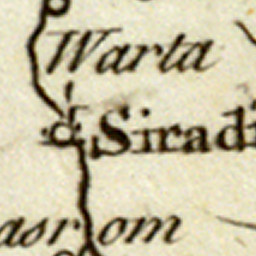 Warta
Siradi
asrom